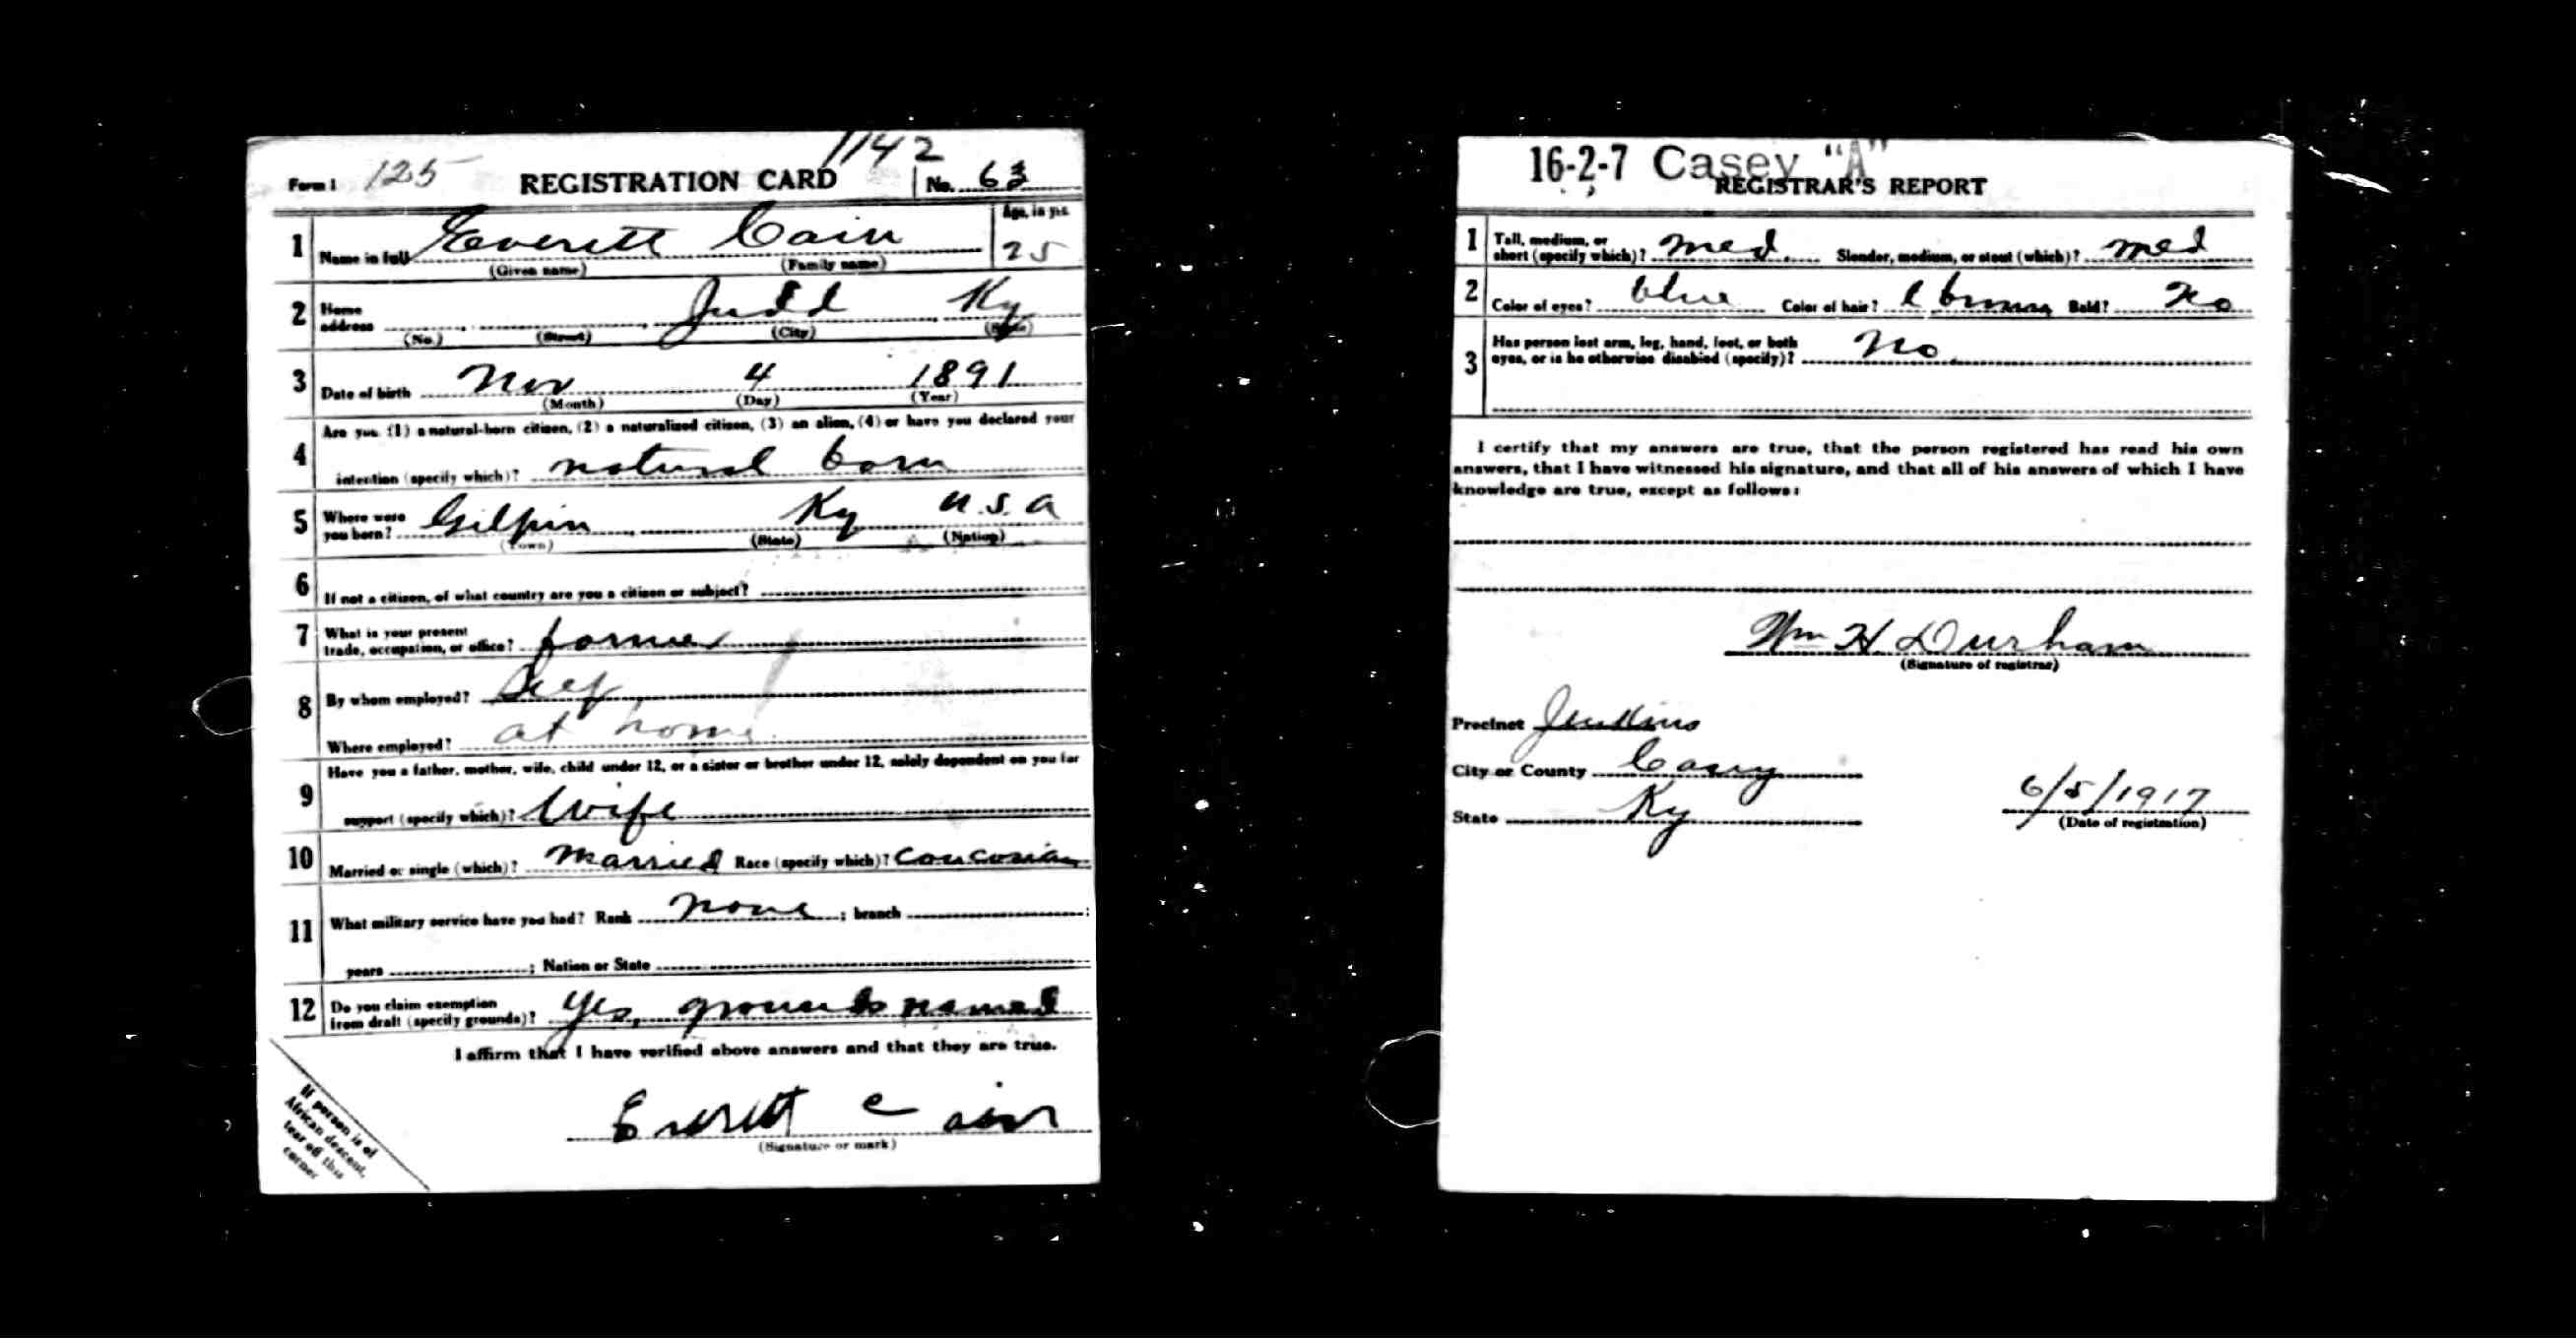 1142
Form 1 125 REGISTRATION CARD No. 63
1 Name in full Everett Cain Age, in yrs. 25
(Given name) (Family name)
2 Home address Judd Ky
(No.) (Street) (City) (State)
3 Date of birth Nov 4 1891
(Month) (Day) (Year)
4 Are you (1) a natural-born citizen, (2) a naturalized citizen, (3) an alien, (4) or have you declared your
intention (specify which)? natural born
5 Where were you born? Gilpin Ky U.S.A
(Town) (State) (Nation)
6 If not a citizen, of what country are you a citizen or subject?
7 What is your present trade, occupation, or office? farmer
8 By whom employed? Self
Where employed? at home
9 Have you a father, mother, wife, child under 12, or a sister or brother under 12, solely dependent on you for
support (specify which)? Wife
10 Married or single (which)? Married Race (specify which)? Coucosian
11 What military service have you had? Rank none ; branch ;
years ; Nation or State
12 Do you claim exemption from draft (specify grounds)? Yes, grounds named
I affirm that I have verified above answers and that they are true.
Everett Cain
(Signature or mark)
If person is of
African descent,
tear off this
corner
16-2-7 Casey "A"
REGISTRAR'S REPORT
1 Tall, medium, or short (specify which)? med. Slender, medium, or stout (which)? med
2 Color of eyes? blue Color of hair? l brown Bald? No
3 Has person lost arm, leg, hand, foot, or both
eyes, or is he otherwise disabled (specify)? No.
I certify that my answers are true, that the person registered has read his own
answers, that I have witnessed his signature, and that all of his answers of which I have
knowledge are true, except as follows:
Wm H. Durham
(Signature of registrar)
Precinct Jenkins
City or County Casey
State Ky
6/5/1917
(Date of registration)